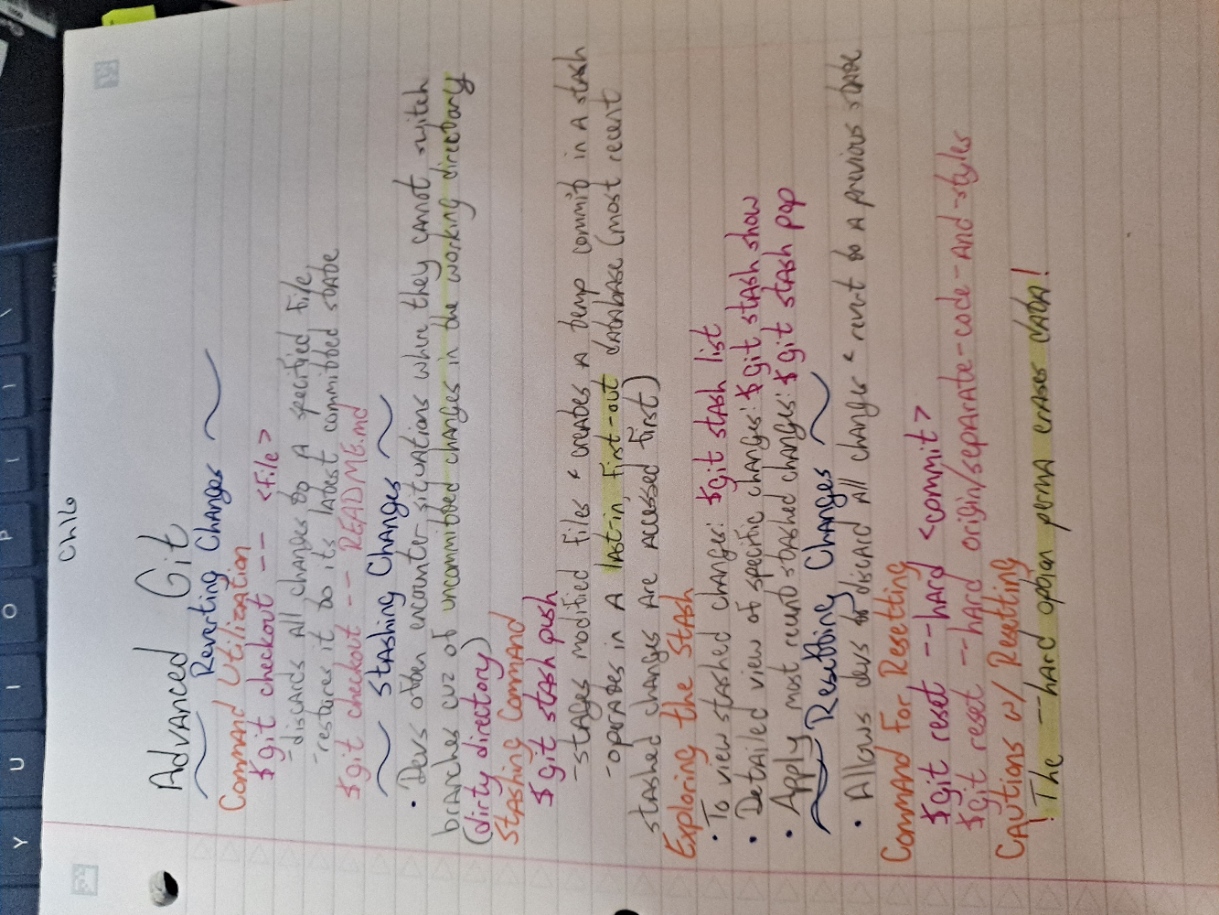 Y U I O P [ ] \
Ch16
Advanced Git
Reverting Changes
Command Utilization
$git checkout -- <file>
-discards all changes to a specified file,
-restores it to its latest committed state
$git checkout -- README.md
Stashing Changes
• Devs often encounter situations where they cannot switch
branches cuz of uncommitted changes in the working directory
(dirty directory)
Stashing Command
$git stash push
-stages modified files & creates a temp commit in a stash
-operates in a last-in, first-out database (most recent
stashed changes are accessed first)
Exploring the Stash
• To view stashed changes: $git stash list
• Detailed view of specific changes: $git stash show
• Apply most recent stashed changes: $git stash pop
Resetting Changes
• Allows devs to discard all changes & revert to a previous state
Command For Resetting
$git reset --hard <commit>
$git reset --hard origin/separate-code-and-styles
Cautions w/ Resetting
! The --hard option perma erases data!